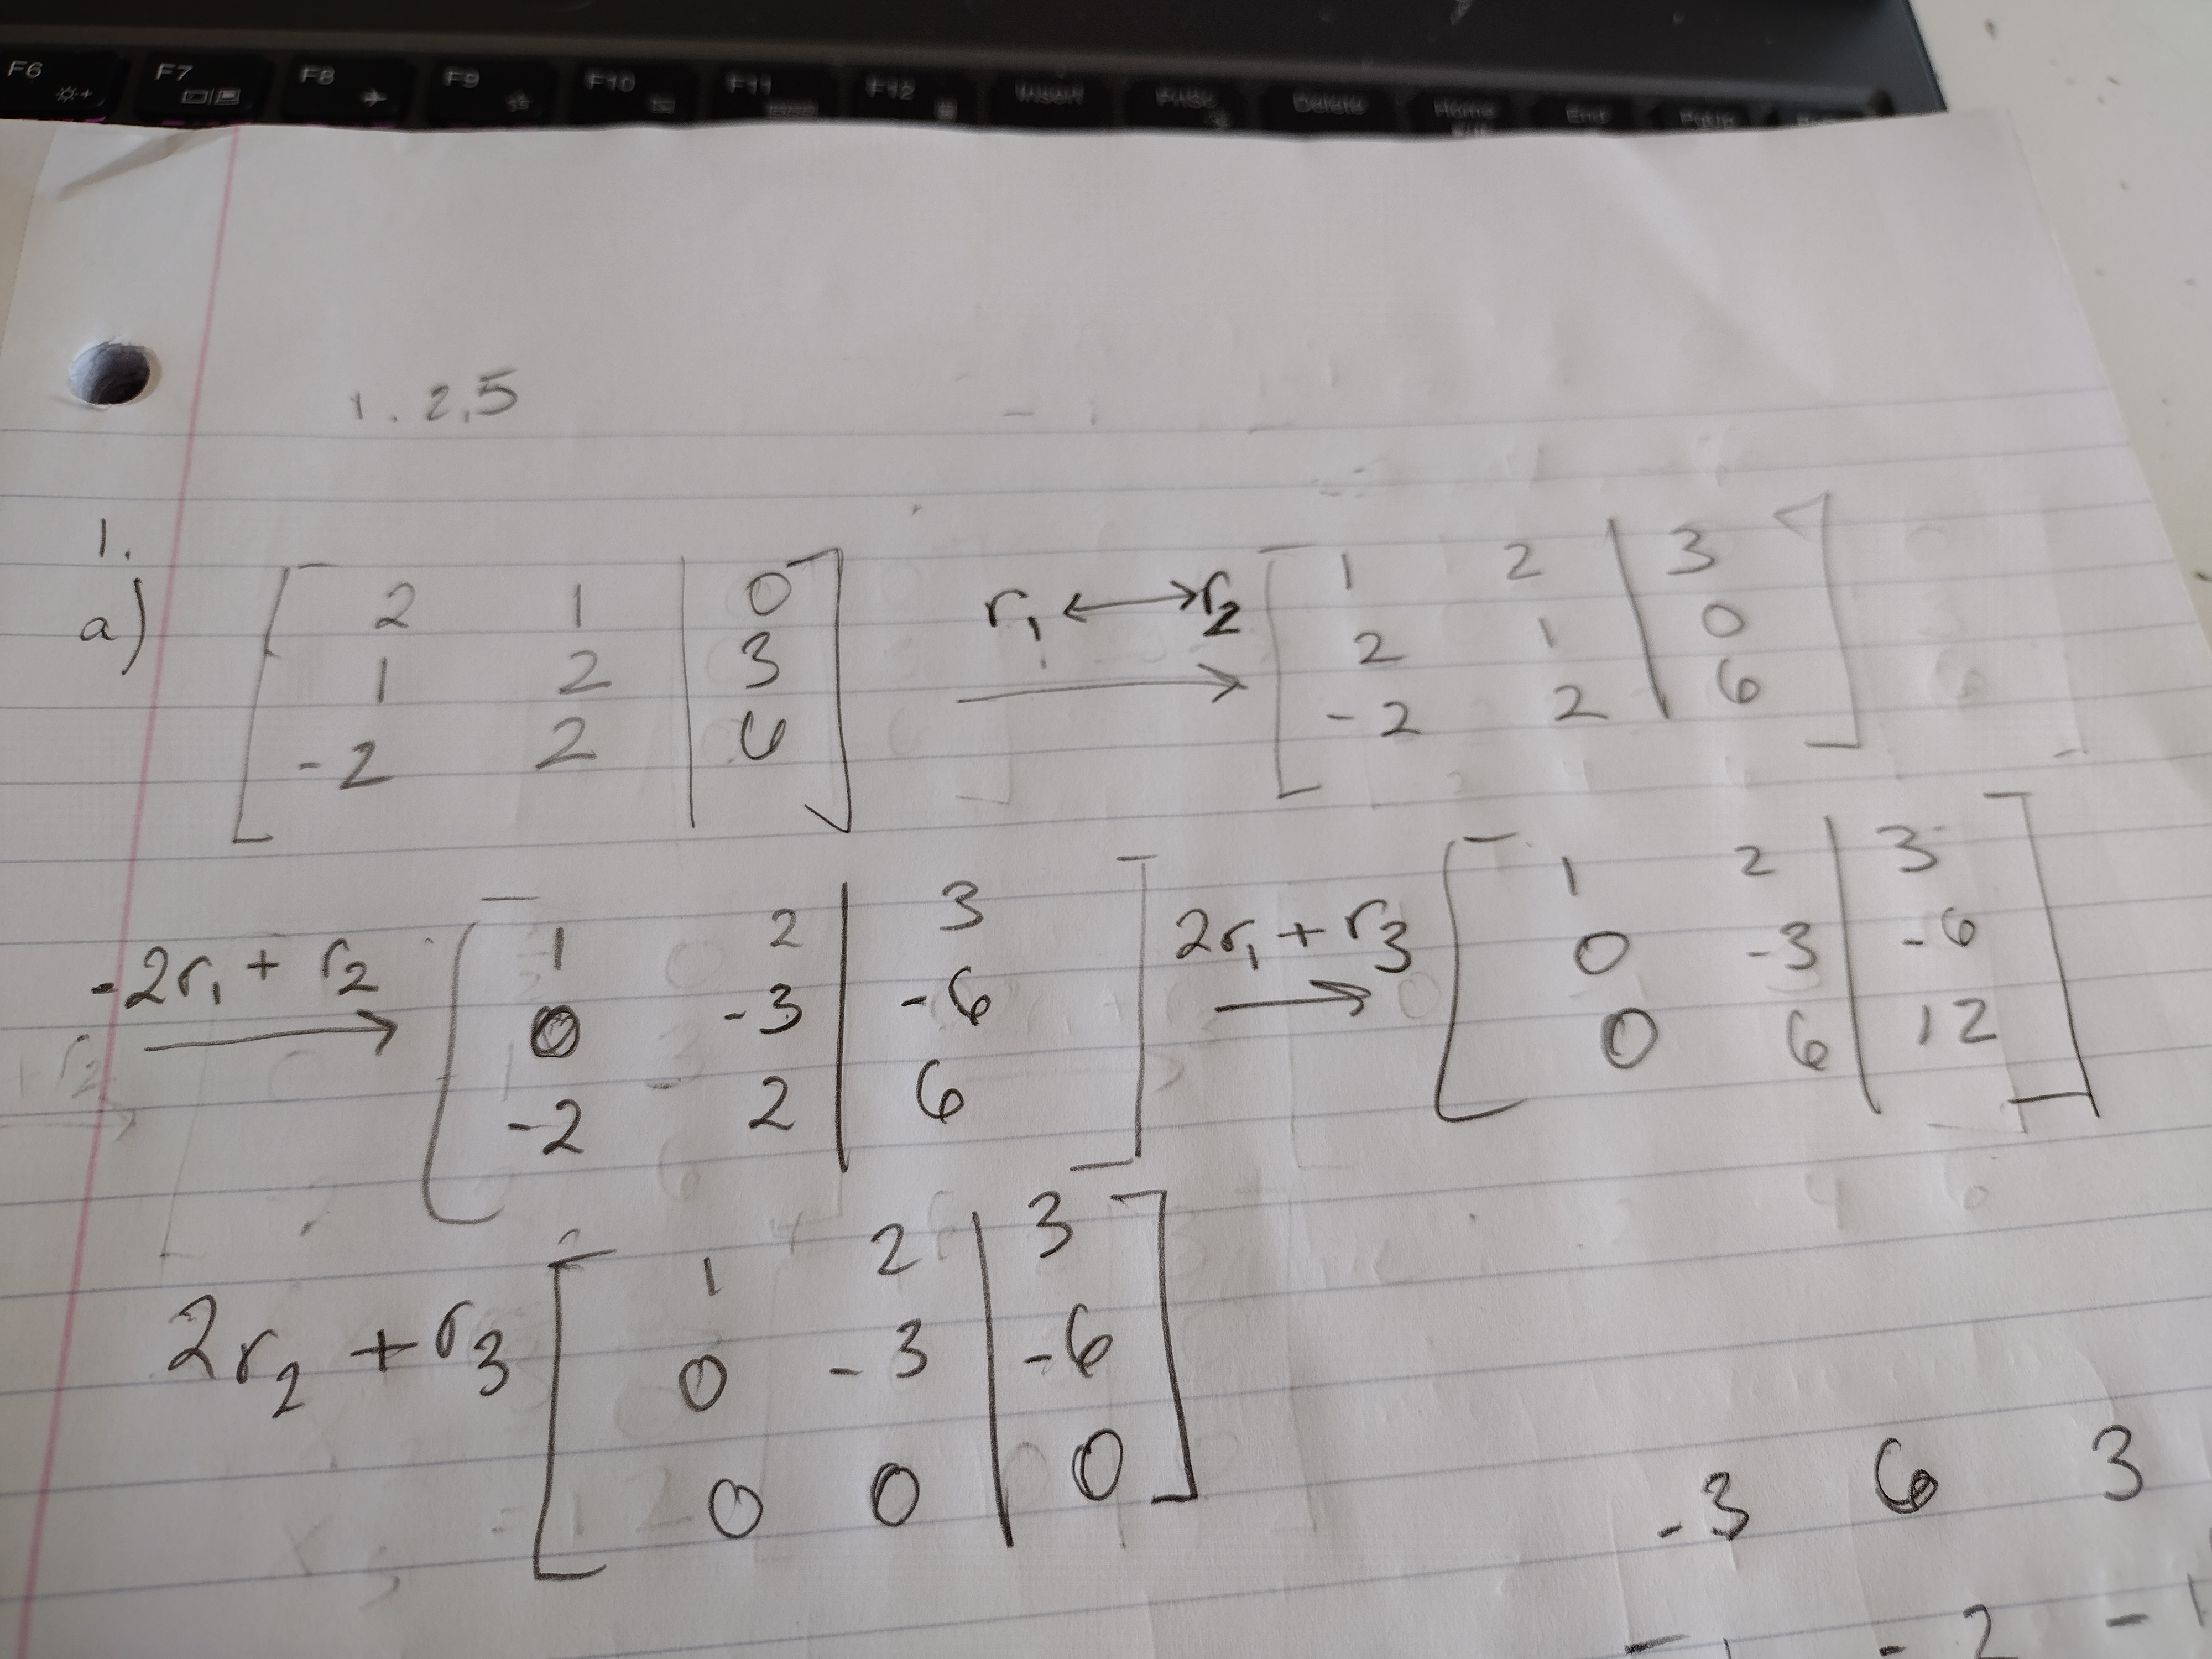 F6 F7 F8 F9 F10 F11 F12 Insert PrtSc Delete Home End PgUp
1.2.5
1.
a)
2 1 | 0
1 2 | 3
-2 2 | 6
r1 ↔ r2
→
1 2 | 3
2 1 | 0
-2 2 | 6
-2r1 + r2
→
1 2 | 3
0 -3 | -6
-2 2 | 6
2r1 + r3
→
1 2 | 3
0 -3 | -6
0 6 | 12
2r2 + r3
1 2 | 3
0 -3 | -6
0 0 | 0
-3 6 3
-2